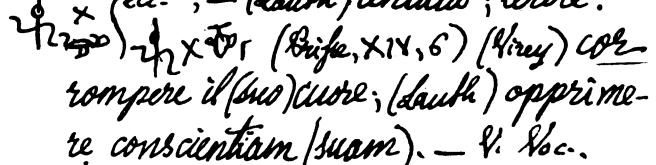 (Lauth)
(Prisse, XIV, 6) (Virey) cor
rompere il (suo) cuore; (Lauth) opprime-
re conscientiam (suam). — V. Voc.